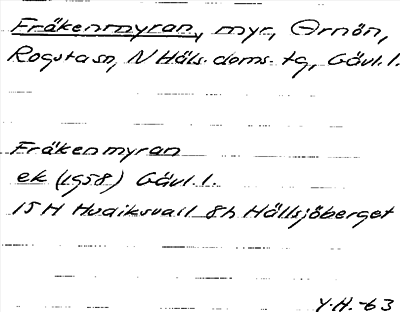 Fräkenmyran, myr, Ornön,
Rogsta sn, N Häls. doms. tg, Gävl. l.
Fräkenmyran
ek (1958) Gävl. l.
15H Hudiksvall 8h Hällsjöberget
Y.H. -63